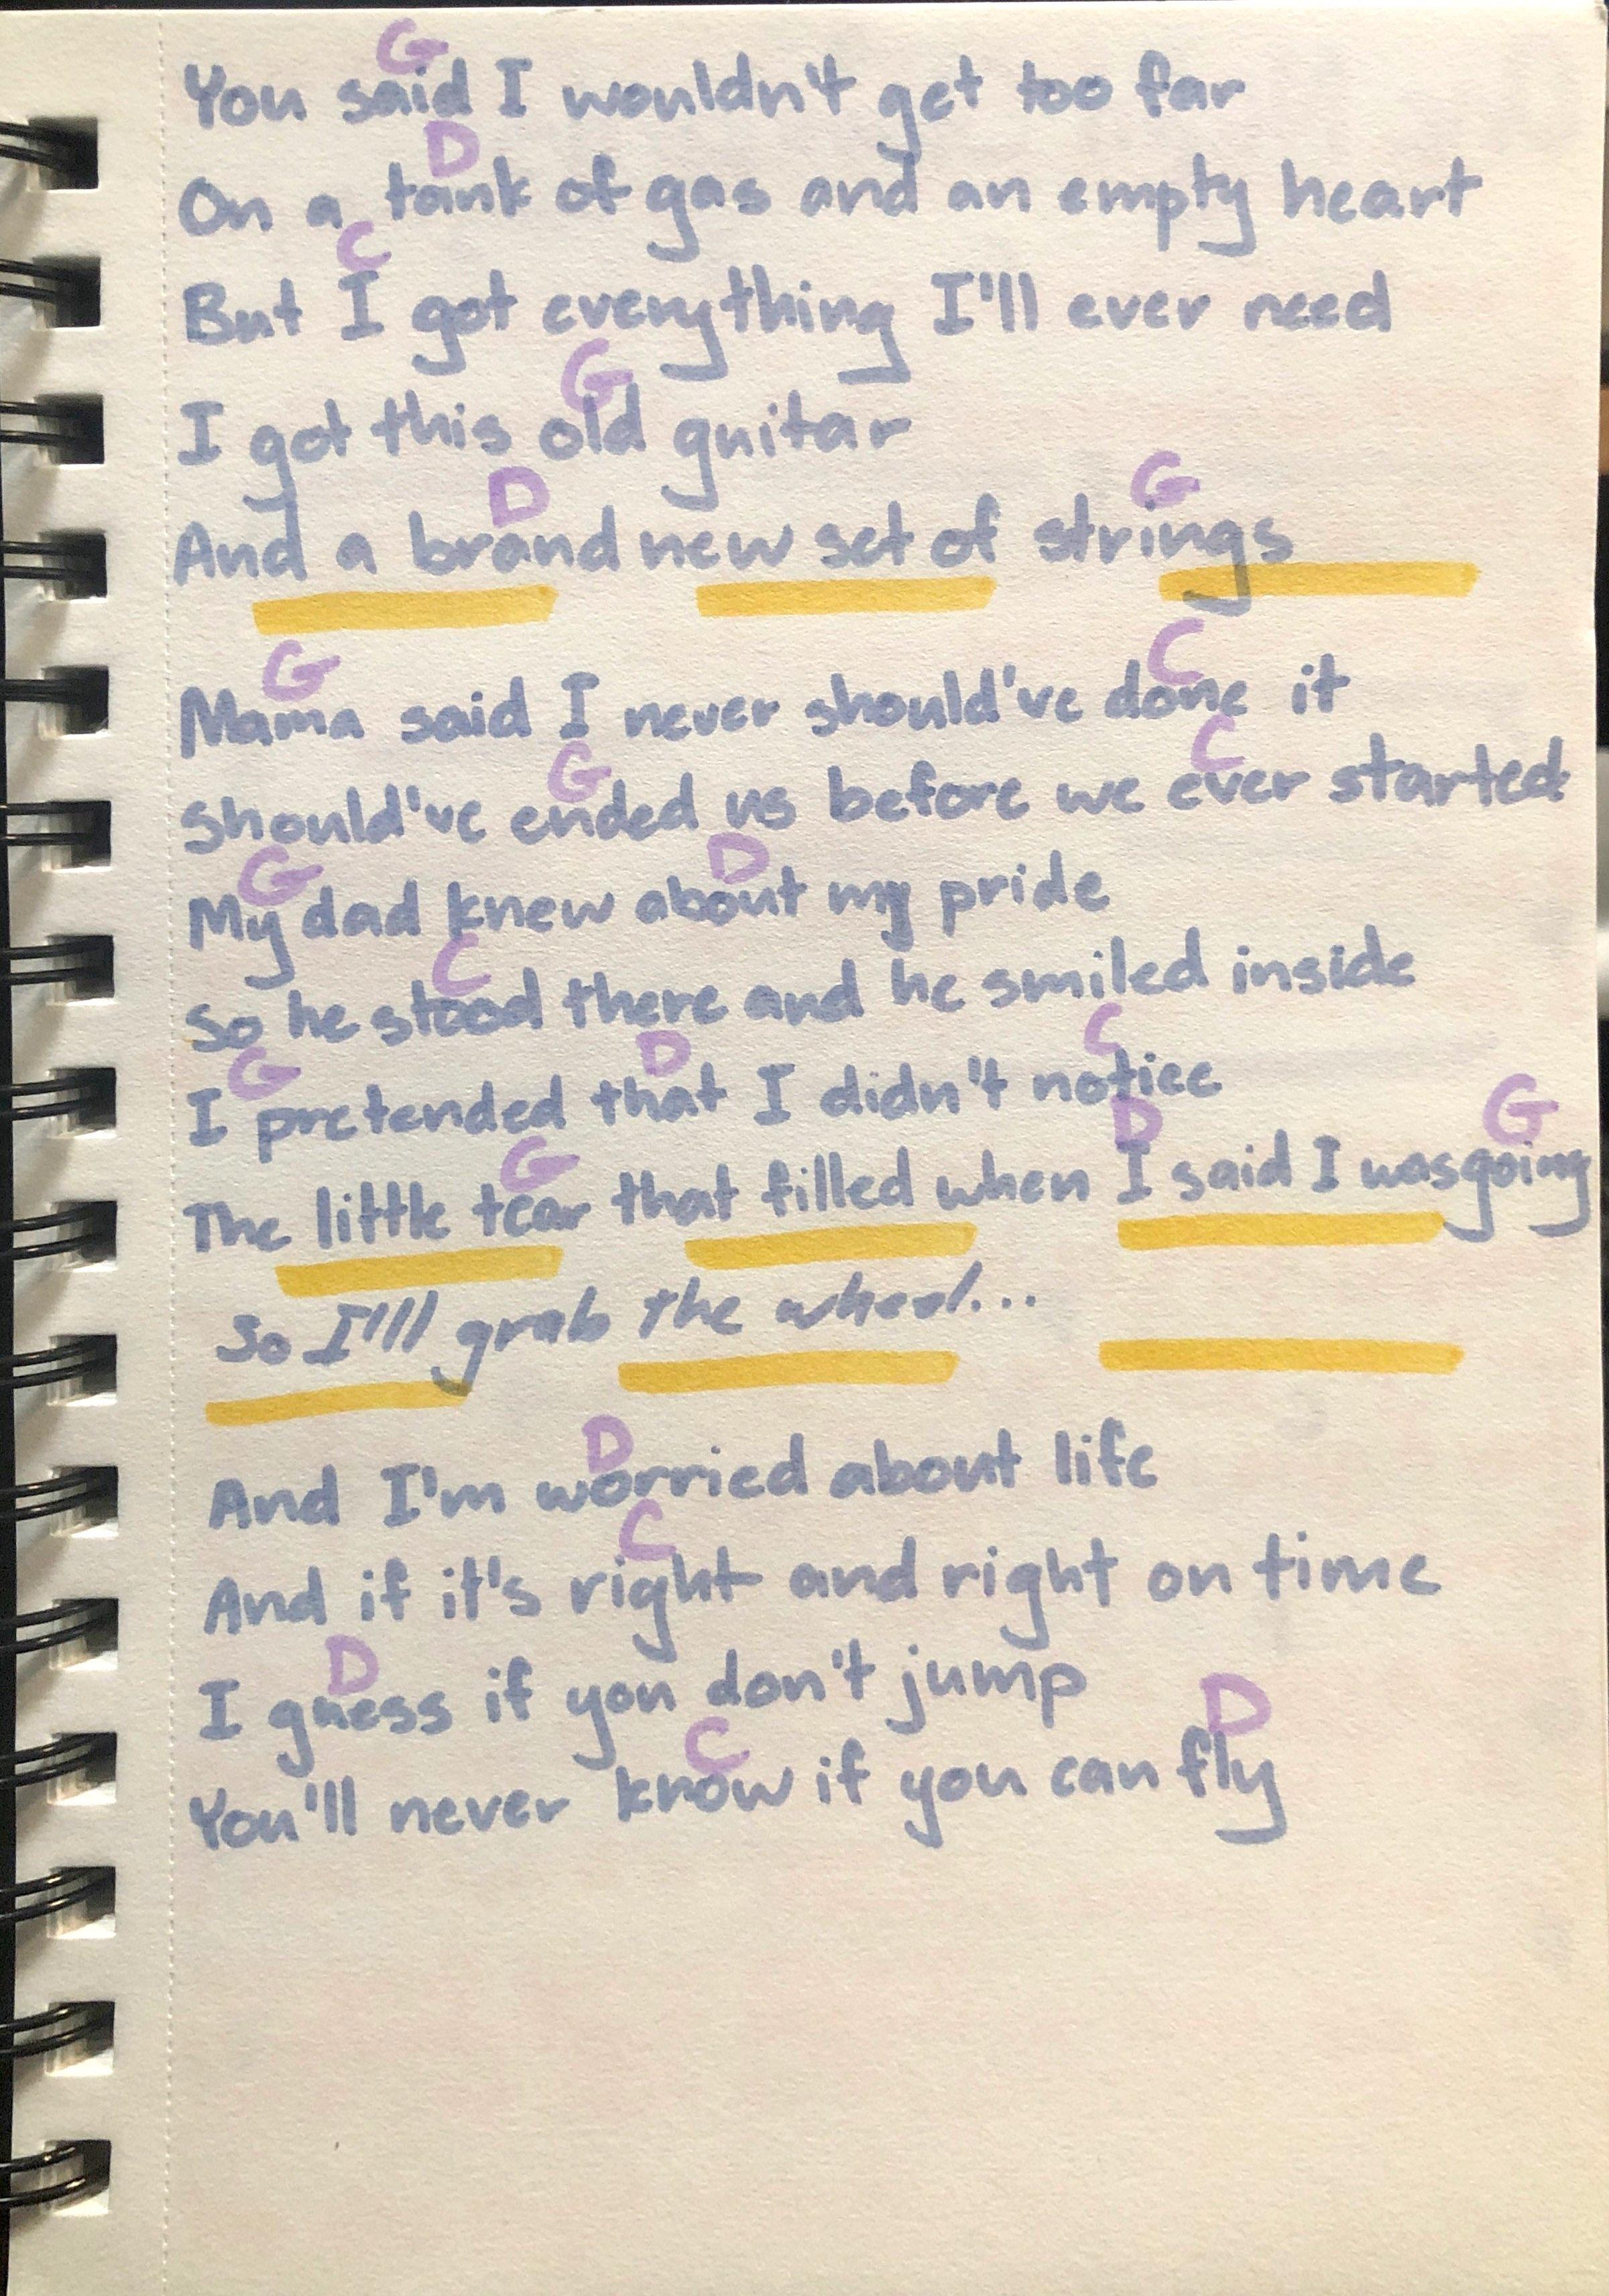 G
You said I wouldn't get too far
D
On a tank of gas and an empty heart
C
But I got everything I'll ever need
G
I got this old guitar
D G
And a brand new set of strings
G C
Mama said I never should've done it
G C
Should've ended us before we ever started
G D
My dad knew about my pride
C
So he stood there and he smiled inside
G D C
I pretended that I didn't notice
G D G
The little tear that filled when I said I was going
So I'll grab the wheel...
D
And I'm worried about life
C
And if it's right and right on time
D
I guess if you don't jump
C D
You'll never know if you can fly